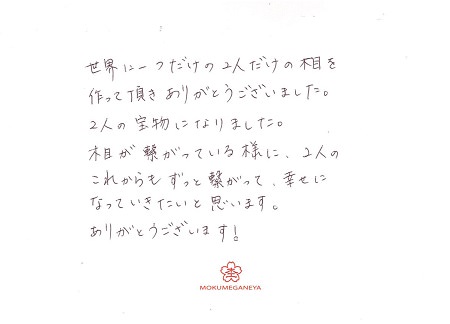 世界に一つだけの2人だけの木目を
作って頂きありがとうございました。
2人の宝物になりました。
木目が繋がっている様に、2人の
これからもずっと繋がって、幸せに
なっていきたいと思います。
ありがとうございます!
MOKUMEGANEYA